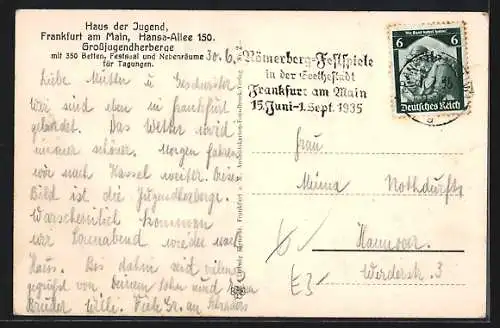 Haus der Jugend,
Frankfurt am Main, Hansa-Allee 150.
Großjugendherberge
mit 350 Betten, Festsaal und Nebenräume
für Tagungen.
30.6.
Liebe Mutter u Geschwister
Wir sind eben in frankfurt
gelandet. Das Wetter wird
immer schöner. Morgen fahren
wir nach Kassel weiter. Dieses
Bild ist die Jugendherberge.
Warscheinlich kommen
wir Sonnabend wieder nach
Haus. Bis dahin seid vielmals
gegrüßt von deinem Sohn und
Bruder Willi. Viele Gr. an
Römerberg-Festspiele
in der Goethestadt
Frankfurt am Main
15. Juni-1. Sept. 1935
6 6
Deutsches Reich
Frau
Minna Nothdurft
Hannover.
Werderstr. 3